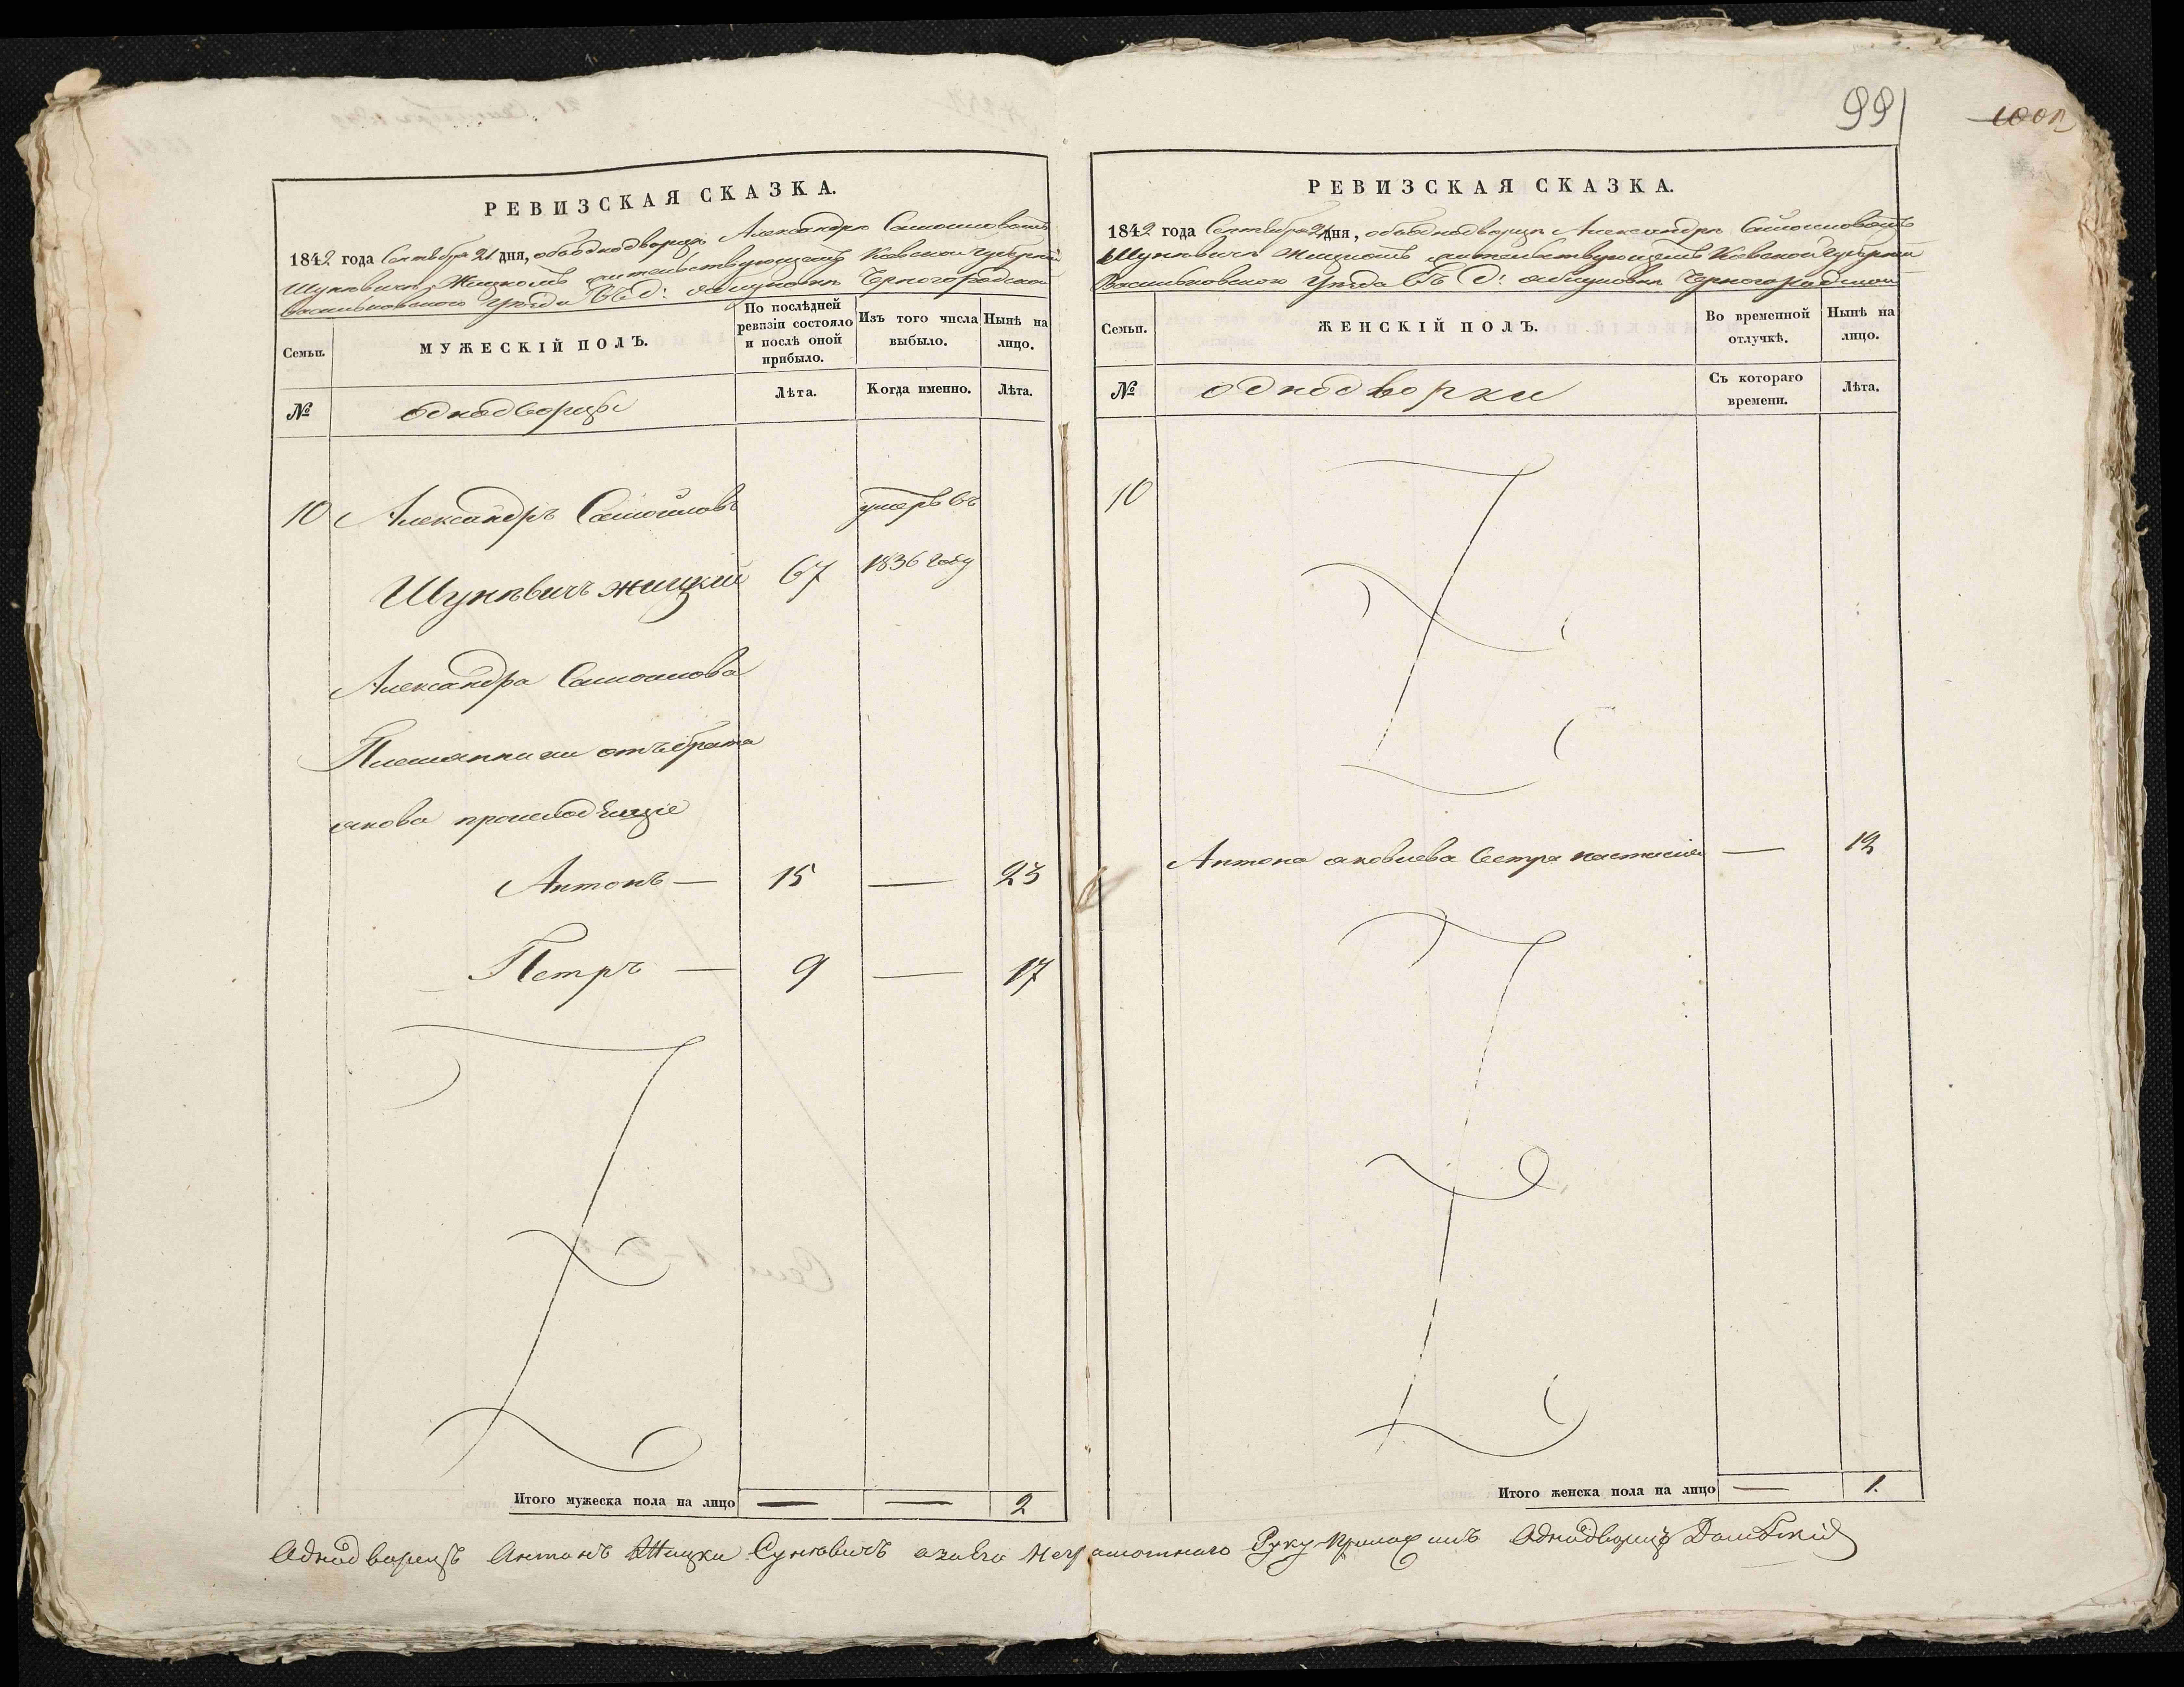 991
1001
РЕВИЗСКАЯ СКАЗКА.
1842 года Сентября 21 дня, объ однодворцѣ Александрѣ Самойловомъ
Шунѣвичъ Жицкомъ жительствующемъ Кіевской Губерніи
Васильковского Уѣзда Въ Д:
Семьи.
МУЖЕСКІЙ ПОЛЪ.
По послѣдней ревизіи состояло и послѣ оной прибыло.
Изъ того числа выбыло.
Нынѣ на лицо.
№
однодворцы
Лѣта.
Когда именно.
Лѣта.
10 Александръ Самойловъ умеръ въ
Шунѣвичъ жицкій 67 1836 году
Александра Самойлова
Племянники отъ брата
якова происходящіе
Антонъ — 15 — 23
Петръ — 9 — 17
Итого мужеска пола на лицо — — 2
РЕВИЗСКАЯ СКАЗКА.
1842 года Сентября 21 дня, объ однодворцѣ Александрѣ Самойловомъ
Шунѣвичъ Жицкомъ жительствующемъ Кіевской Губерніи
Васильковского Уѣзда Въ Д:
Семьи.
ЖЕНСКІЙ ПОЛЪ.
Во временной отлучкѣ.
Нынѣ на лицо.
№
однодворки
Съ котораго времени.
Лѣта.
10
Антона яковлева Сестра настасія — 12
Итого женска пола на лицо — 1.
Аднадворецъ Антонъ Жицки Сунѣвичъ а за Его Неграмотнаго Руку Приложилъ Аднадворецъ